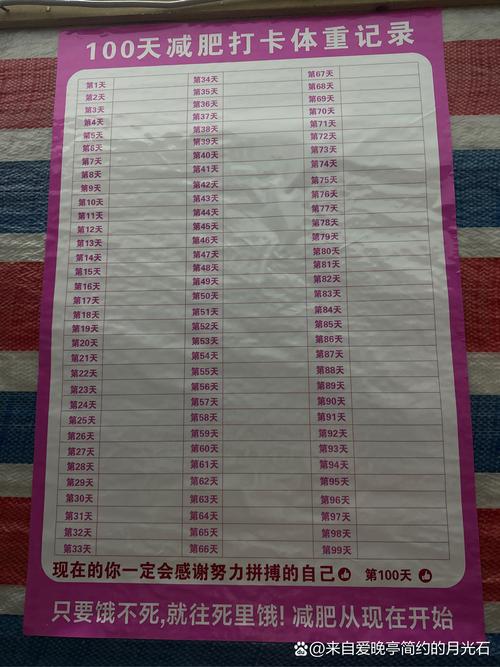 100天减肥打卡体重记录
第1天 第34天 第67天
第2天 第35天 第68天
第3天 第36天 第69天
第4天 第37天 第70天
第5天 第38天 第71天
第6天 第39天 第72天
第7天 第40天 第73天
第8天 第41天 第74天
第9天 第42天 第75天
第10天 第43天 第76天
第11天 第44天 第77天
第12天 第45天 第78天
第13天 第46天 第79天
第14天 第47天 第80天
第15天 第48天 第81天
第16天 第49天 第82天
第17天 第50天 第83天
第18天 第51天 第84天
第19天 第52天 第85天
第20天 第53天 第86天
第21天 第54天 第87天
第22天 第55天 第88天
第23天 第56天 第89天
第24天 第57天 第90天
第25天 第58天 第91天
第26天 第59天 第92天
第27天 第60天 第93天
第28天 第61天 第94天
第29天 第62天 第95天
第30天 第63天 第96天
第31天 第64天 第97天
第32天 第65天 第98天
第33天 第66天 第99天
现在的你一定会感谢努力拼搏的自己 第100天
只要饿不死,就往死里饿! 减肥从现在开始
来自爱晚亭简约的月光石